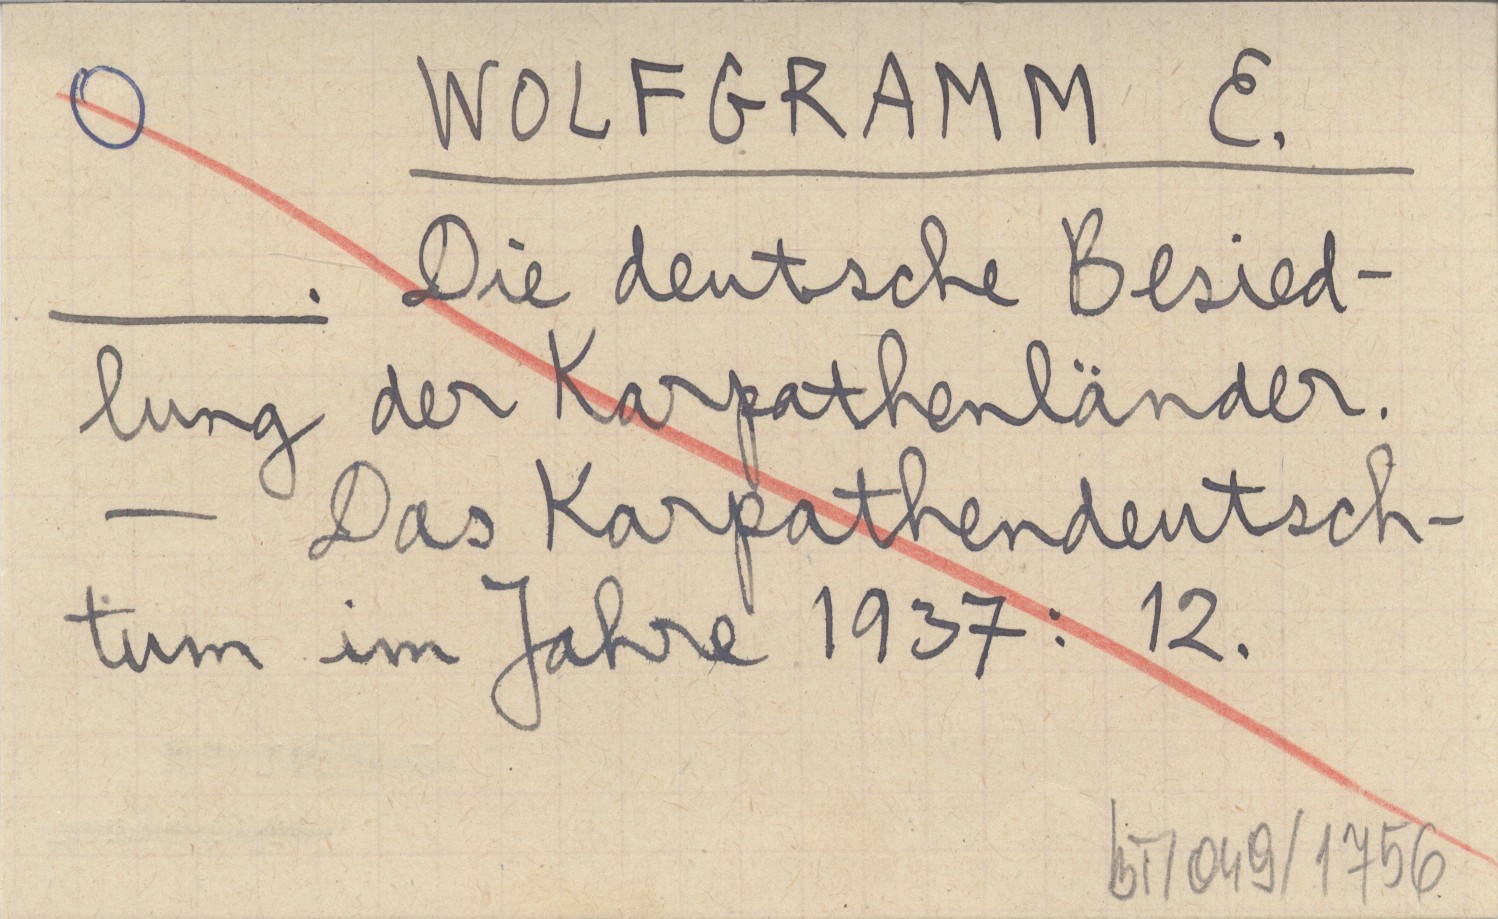 WOLFGRAMM E.
. Die deutsche Besied-
lung der Karpathenländer.
— Das Karpathendeutsch-
tum im Jahre 1937: 12.
/049/1756